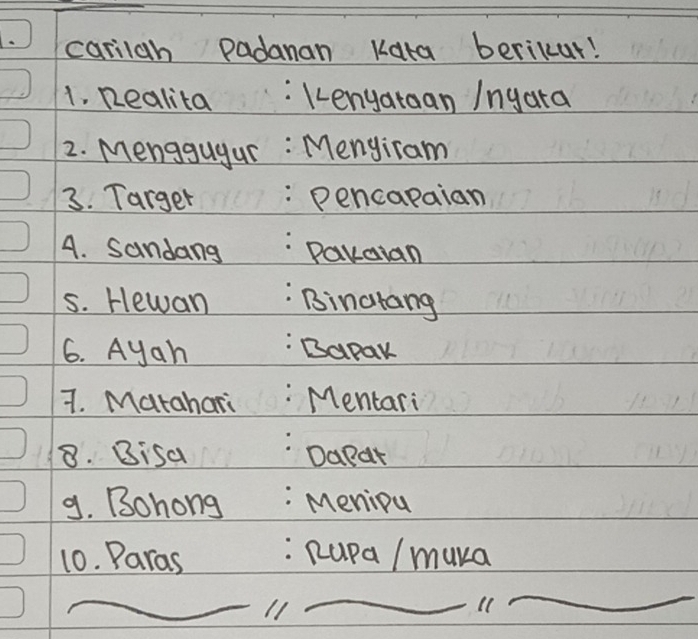 Carilah Padanan Kata berikut!
1. Realita : Kenyataan / nyata
2. Mengguyur : Menyiram
3. Target : Pencapaian
4. Sandang : Pakaian
5. Hewan : Binatang
6. Ayah : Bapak
7. Matahari : Mentari
8. Bisa : Dapat
9. Bohong : Menipu
10. Paras : Rupa / muka